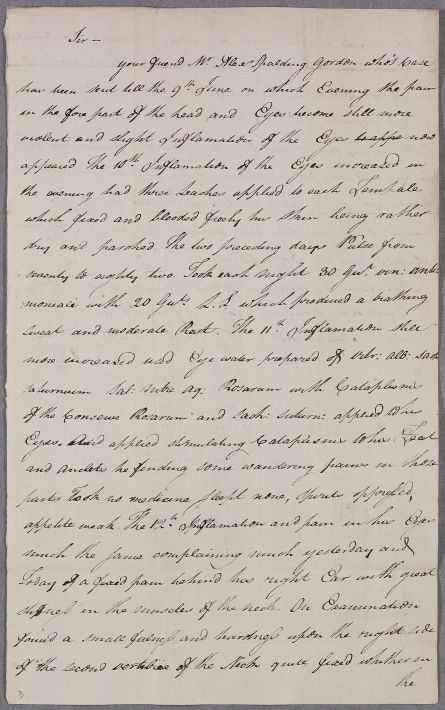 Sir –
your friend Mr. Alexr Spalding Gordon who's Case
has been sent till the 9th. June on which Evening the pain
in the fore part of the head and Eyes become still more
violent and slight Inflamation of the Eyes to appe now
appeared The 10th. Inflamation of the Eyes increased in
the evening had three Leaches applied to each Temphale
which fixed and blooded freely his Skin being rather
dry and parched. The two preceding days Pulse from
seventy to eighty two. Took each night 30 Gut. vin: anti-
moniale with 20 Guts. L. L which produced a breathing
sweat and moderate Rest. The 11th. Inflamation still
more increased used Eye water prepared of vitr: alb: sach
saturnum Sal: nitre aq. Rosarum with Cataplasms
of the Conserve Rosarum and sach: saturn: applied to his
Eyes. applied stimulating Cataplasms to his Feet
and ancles he finding some wandering pains in those
parts Took no medicine slept none, spirits oppressed,
appetite weak. The 12th. Inflamation and pain in his Eyes
much the same complaining much yesterday and
Today of a fixed pain behind his right Ear with great
stifness in the muscles of the neck. On Examination
found a small fulness and hardness upon the right side
of the second vertebice of the Neck quite fixed whither in
the
3